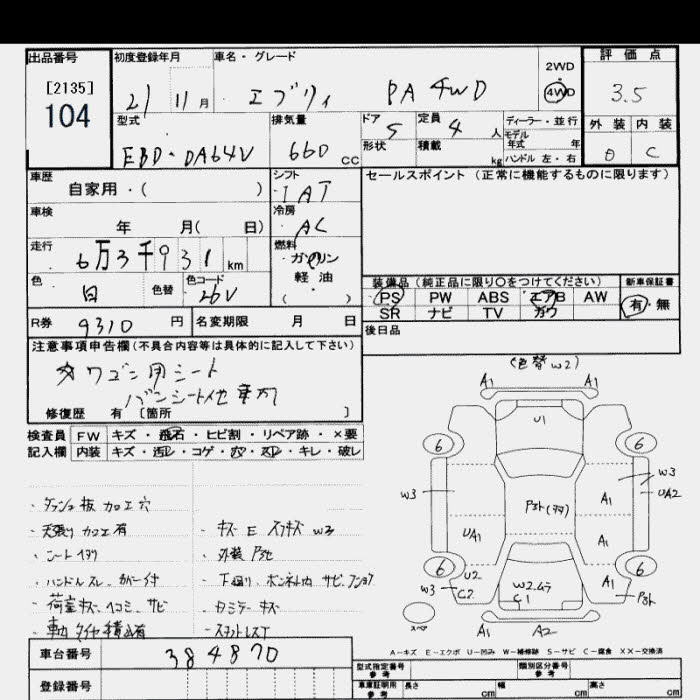 出品番号 初度登録年月 車名・グレード 評価点
[2135] 2WD
104 21 11月 エブリィ PA 4WD 4WD 3.5
型式 排気量 ドア 定員 ディーラー・並行 外装 内装
EBD-DA64V 660 CC 5 4 人 モデル年式 年 C
形状 積載 kg ハンドル 左・右
車歴 シフト セールスポイント (正常に機能するものに限ります)
自家用・( ) IAT
車検 冷房
年 月( 日) AC
走行 燃料
6万3千931km ガソリン
軽油
色 色替 色コード 装備品 (純正品に限り○をつけてください) 新車保証書
白 26V ( ) PS PW ABS エアB AW 有・無
SR ナビ TV カワ
R券 9310円 名変期限 月 日 後日品
注意事項申告欄 (不具合内容等は具体的に記入して下さい)
ワゴン用シート
修復歴 有 [箇所 ]
(色替 W2)
検査員 FW キズ・飛石・ヒビ割・リペア跡・×要
記入欄 内装 キズ・汚レ・コゲ・穴・スレ・キレ・破レ
A1 A1
U1
6 6
W3 W3
A1 UA2
UA1 A1
6 6
U2 W2ムラ A1
W3 C2 C1
A1 A2
・ダッシュ板 加工穴
・天張り 加工有
・キズ E スリキズ W3
・ハンドルスレ カバー付
・下廻り、ボンネット内 サビ
・荷室キズ、ヘコミ、サビ
スペア
A-キズ E-エクボ U-凹み W-補修跡 S-サビ C-腐食 XX-交換済
車台番号 384870
型式指定番号 参考 類別区分番号 参考
登録番号 車庫証明用 参考 長さ cm 幅 cm 高さ cm